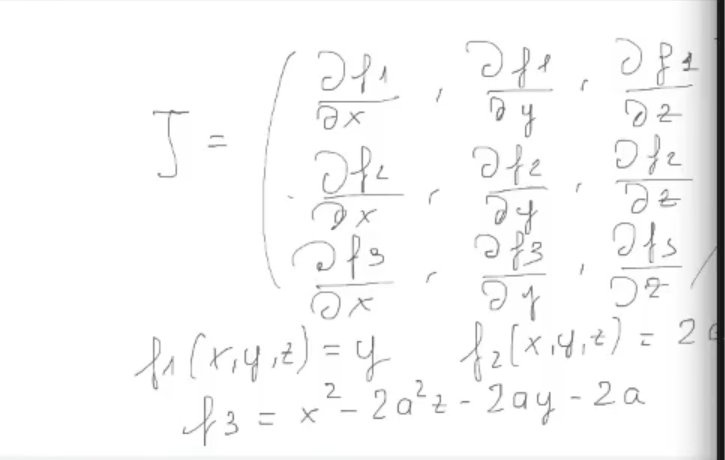 J = ( ∂f1/∂x , ∂f1/∂y , ∂f1/∂z
∂f2/∂x , ∂f2/∂y , ∂f2/∂z
∂f3/∂x , ∂f3/∂y , ∂f3/∂z )
f1(x,y,z) = y f2(x,y,z) = 2
f3 = x² - 2a²z - 2ay - 2a